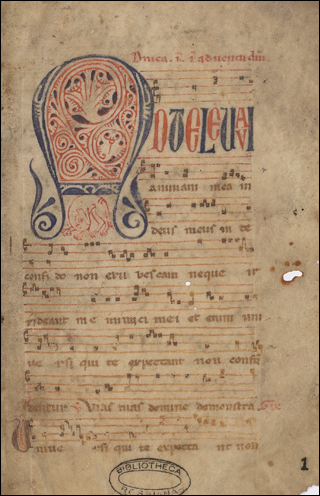 Dñica. i. i adventu dñi.
AD TE LEVAVI
animam meam
deus meus in te
confido non erubescam neque ir
rideant me inimici mei et enim uni
ve rsi qui te expectant non confū
dentur Vias tuas domine demonstra
Unive rsi qui te expecta nt non
BIBLIOTHECA
1